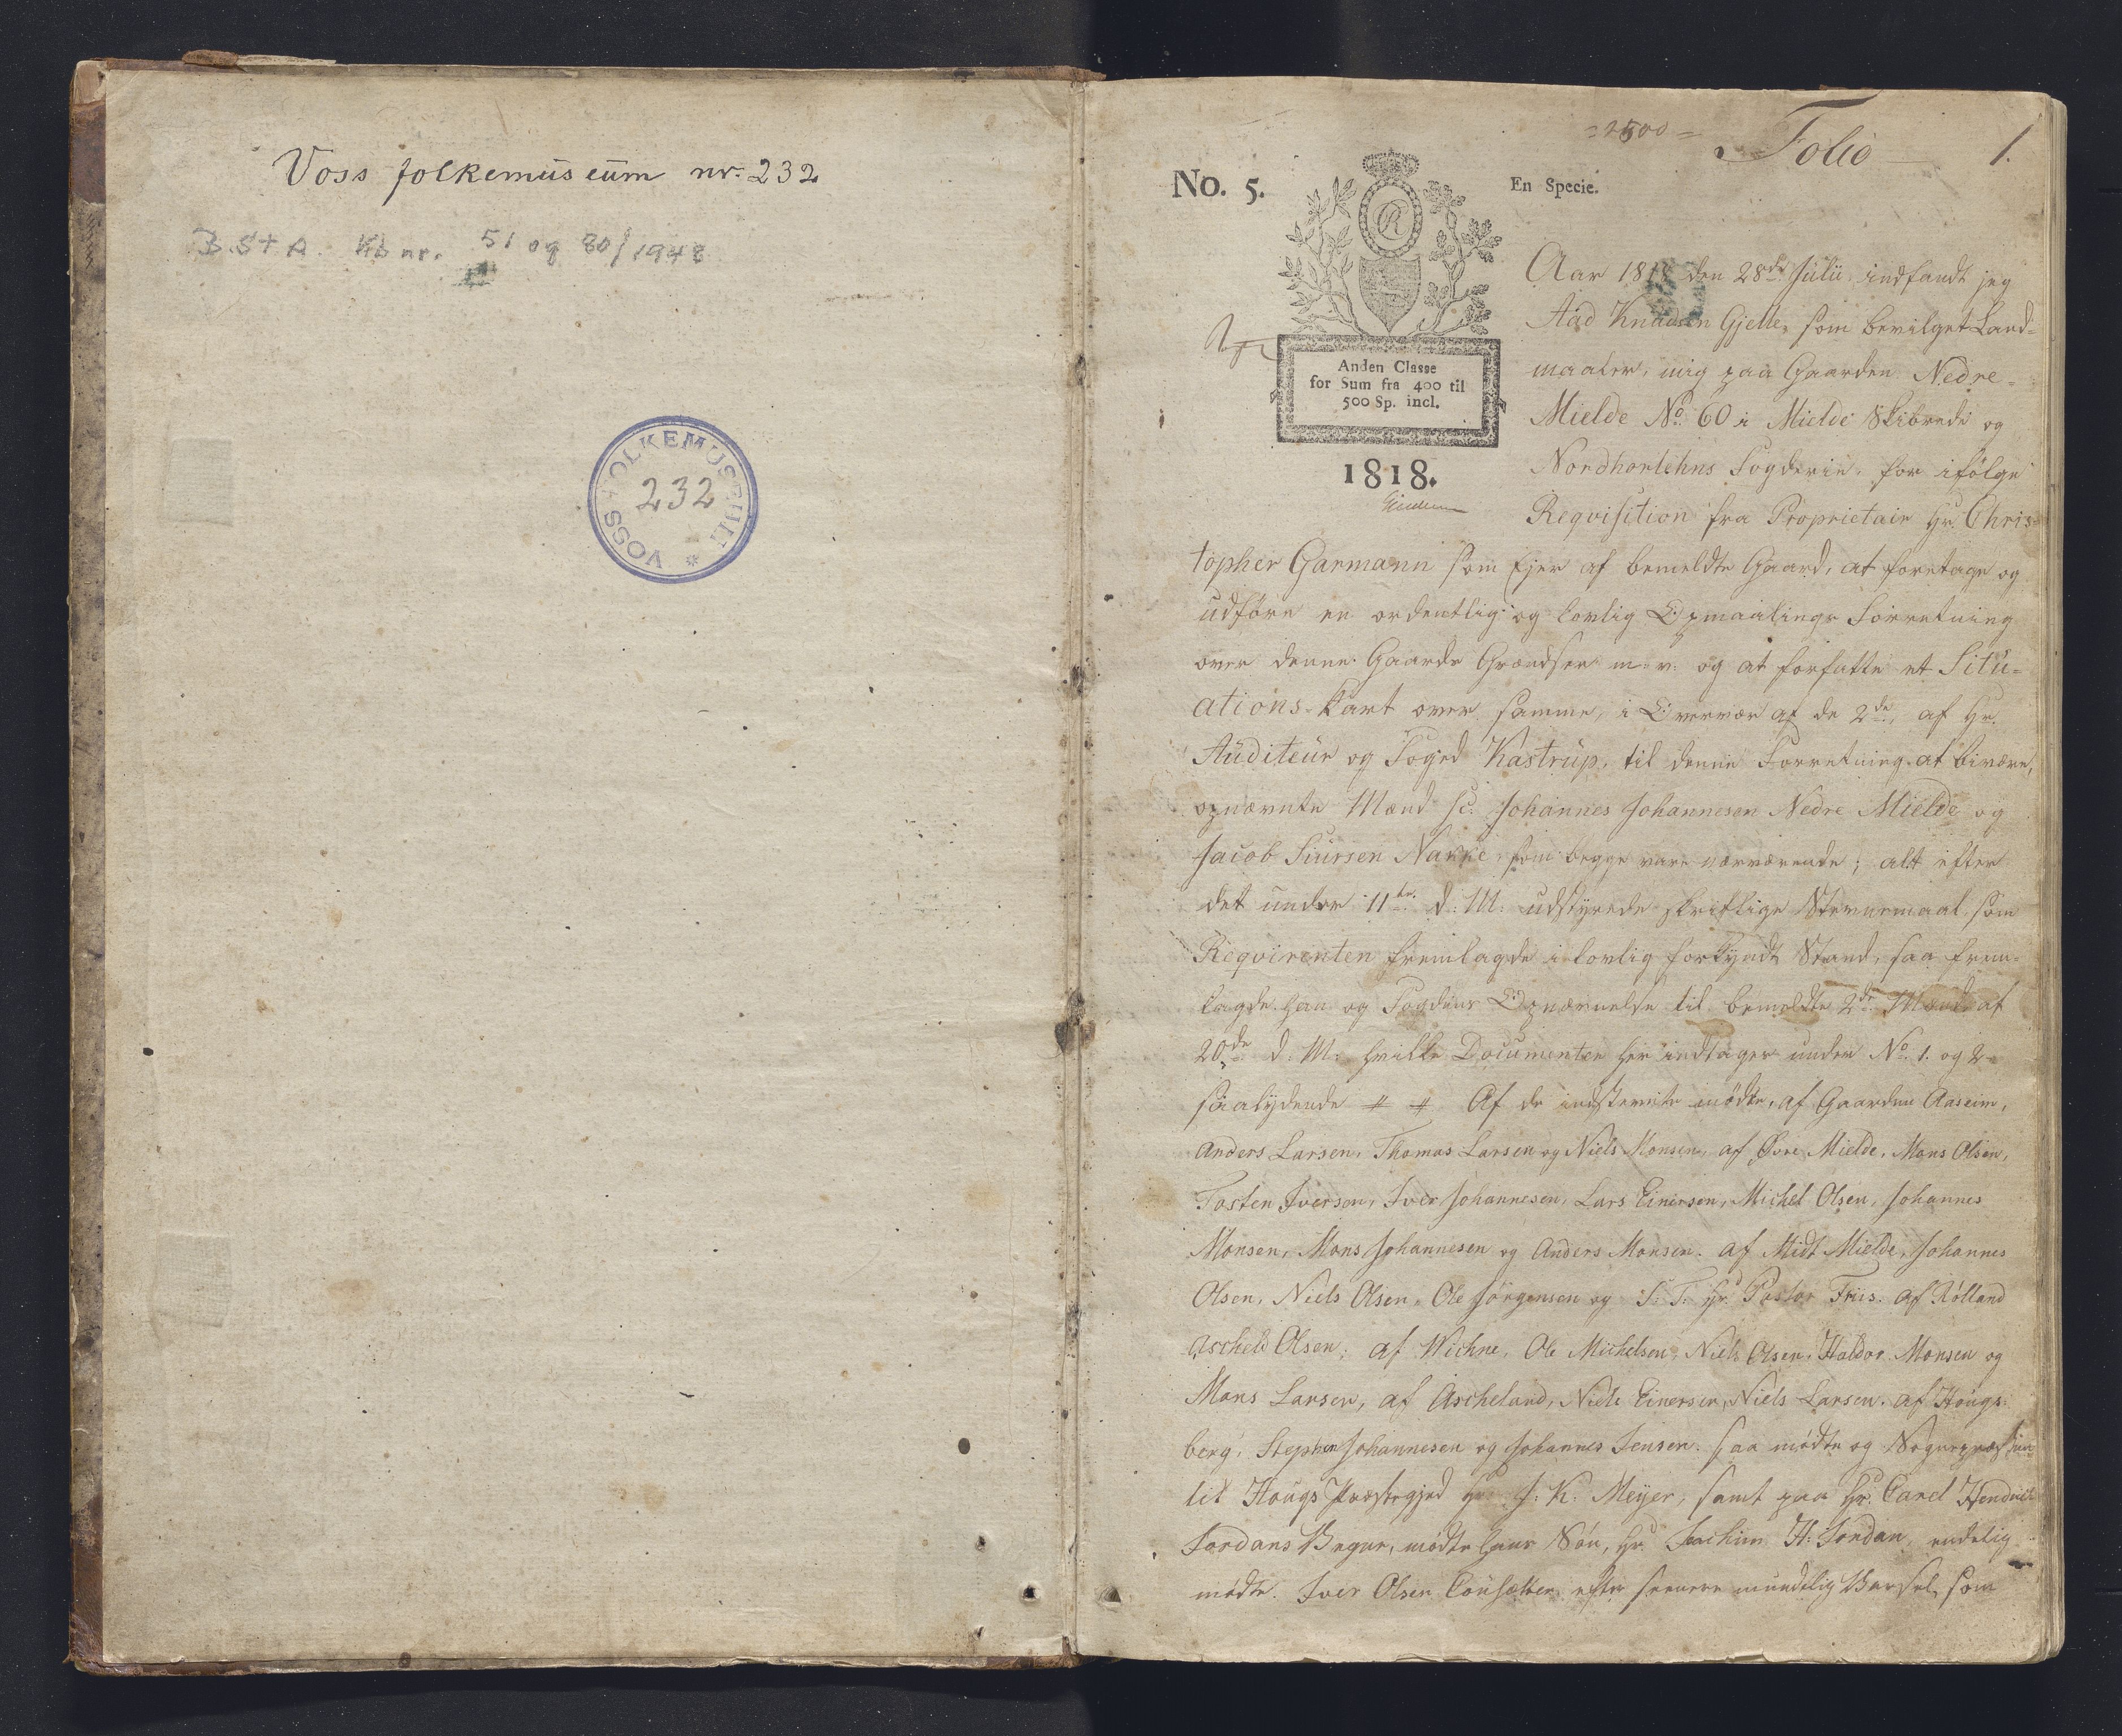 Voss folkemuseum nr. 232
B. St A. Kb nr. 51 og 80/1948
VOSS FOLKEMUSEUM
232
2500
Folio 1.
No. 5.
En Specie.
R
Anden Classe
for Sum fra 400 til
500 Sp. incl.
1818.
Aar 1818 den 28de Julii indfandt jeg
Aad Knudsen Gjelle, som bevilget Land-
maaler, mig paa Gaarden Nedre-
Mielde No. 60 i Mielde Skibrede og
Nordhorlehns Fogderie, for ifølge
Reqvisition fra Proprietair Hr. Chris-
topher Garmann som Ejer af bemeldte Gaard, at foretage og
udføre en ordentlig og lovlig Opmaalings Forretning
over denne Gaards Grændser m. v. og at forfatte et Situ-
ations-Kart over samme, i Overvær af de 2de, af Hr.
Auditeur og Foged Kastrup, til denne Forretning at bivære,
opnævnte Mænd sc. Johannes Johannesen Nedre Mielde og
Jacob Siursen Nakke, som begge vare nærværende; alt efter
det under 11te d. M. udstyrede skriftlige Stevnemaal som
Reqvirenten fremlagde i lovlig forkyndt Stand, saa frem-
lagde han og Fogdens Opnævnelse til bemeldte 2de Mænd af
20de d. M. hvilke Documenter her indtages under No. 1. og 2
saalydende # # Af de indstevnte mødte, af Gaarden Aaseim,
Anders Larsen, Thomas Larsen og Niels Monsen, af Øvre Mielde, Mons Olsen,
Tosten Iversen, Iver Johannesen, Lars Einersen, Michel Olsen, Johannes
Monsen, Mons Johannesen og Anders Monsen. af Midt Mielde, Johannes
Olsen, Niels Olsen, Ole Jørgensen og S. T. Hr. Pastor Friis. af Rølland
Ascheld Olsen. af Wichne, Ole Michelsen, Niels Olsen, Haldor Monsen og
Mons Larsen, af Ascheland, Niels Einersen, Niels Larsen. af Hougs-
berg, Stephen Johannesen og Johannes Jensen. saa mødte og Sognepræsten
til Hougs Præstegjed Hr. J. K. Meyer, samt paa Hr. Carel Hendrich
Jordans Vegne, mødte hans Søn, Hr. Jochim H. Jordan, endelig
mødte Iver Olsen efter seenere mundtlig Varsel, som